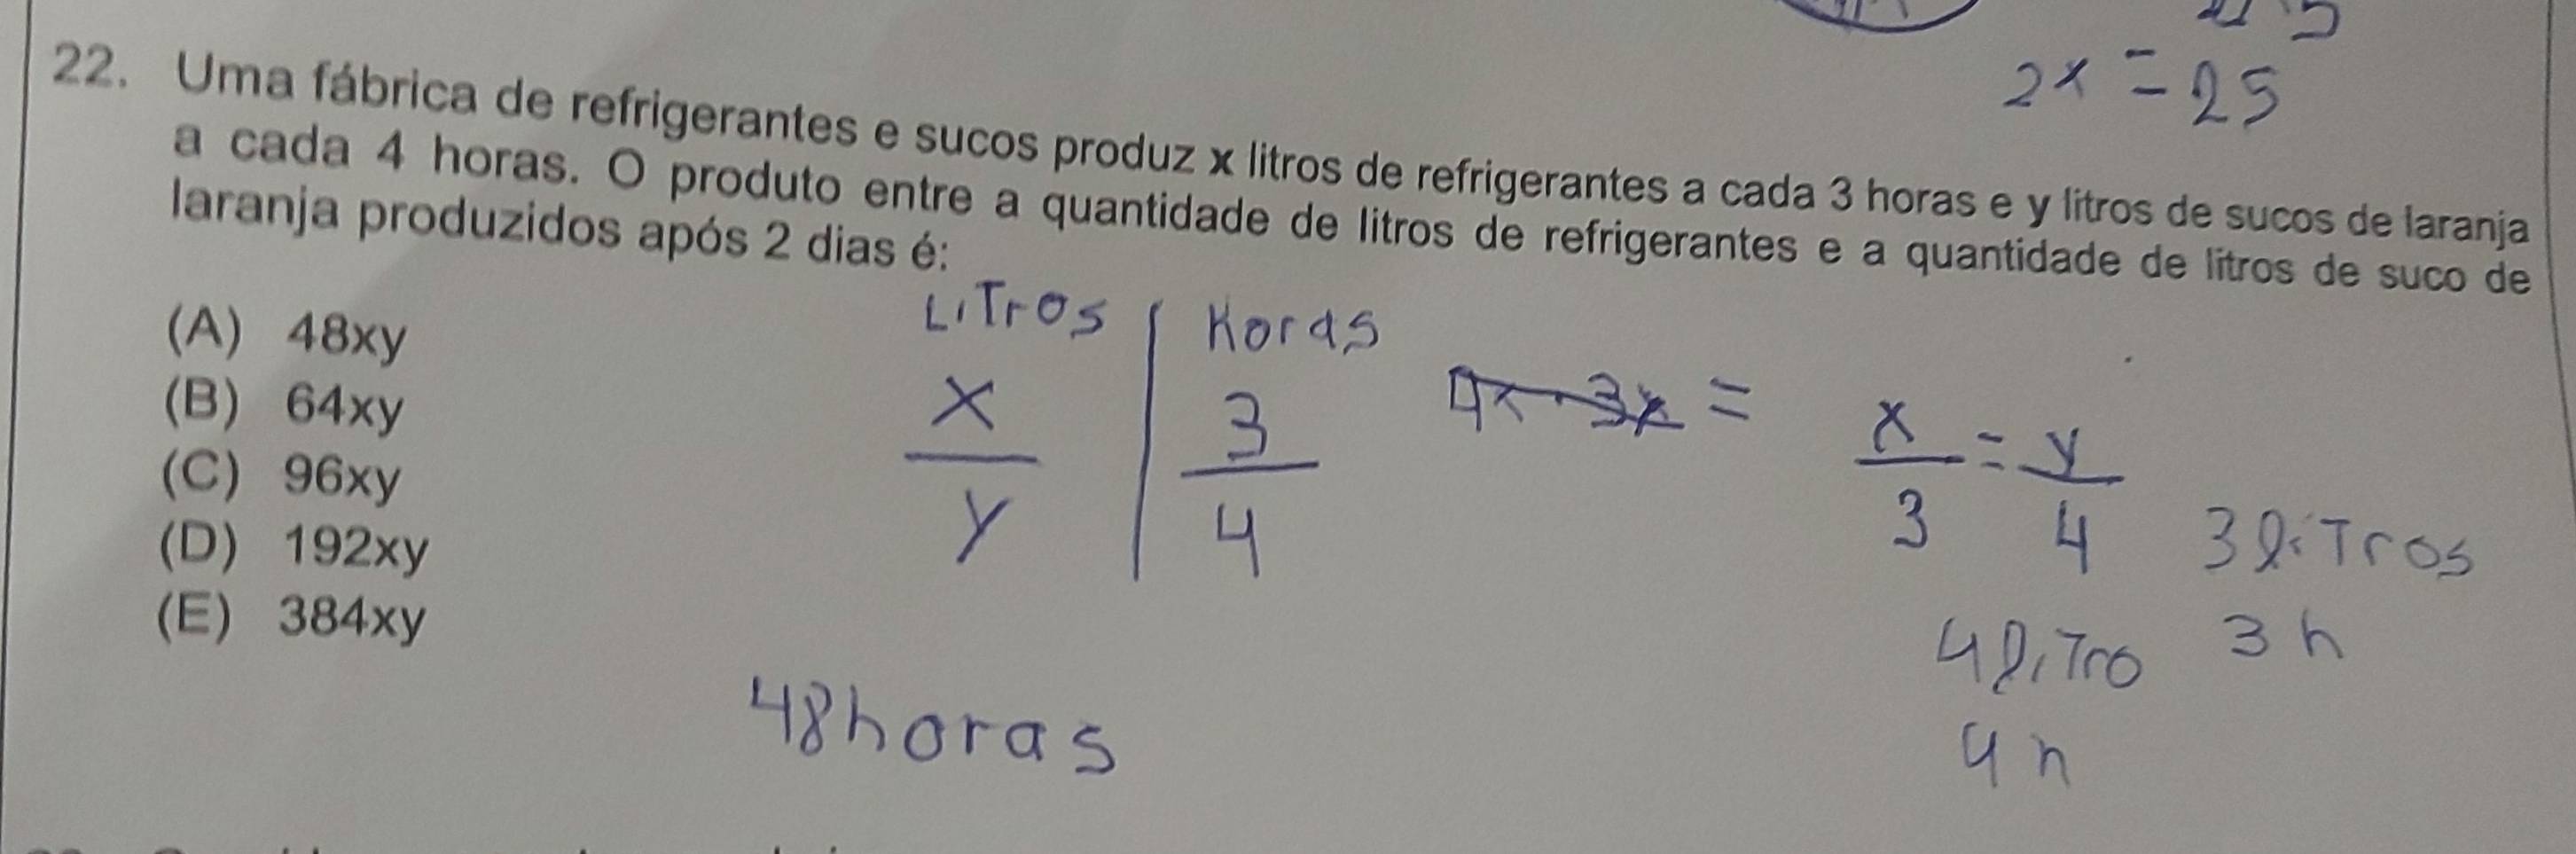 2x = 25
22. Uma fábrica de refrigerantes e sucos produz x litros de refrigerantes a cada 3 horas e y litros de sucos de laranja
a cada 4 horas. O produto entre a quantidade de litros de refrigerantes e a quantidade de litros de suco de
laranja produzidos após 2 dias é:
(A) 48xy
(B) 64xy
(C) 96xy
(D) 192xy
(E) 384xy
LiTros | Horas
x/y | 3/4
=
x/3 = y/4
3 liTros
3 h
4 liTro
4 h
48 horas